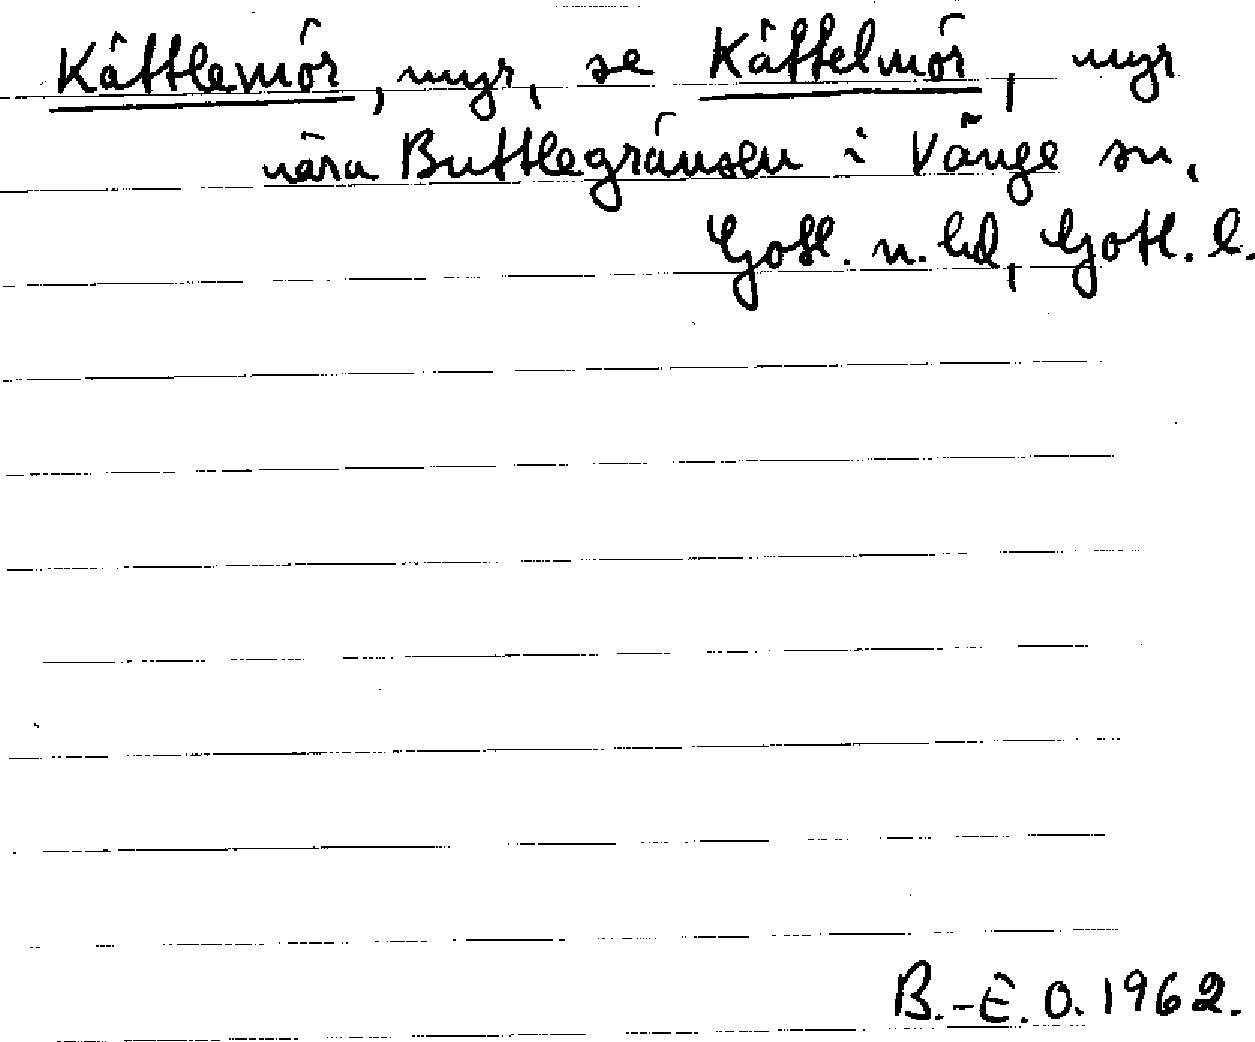 Kättlemör, myr, se Kättelmör, myr
nära Buttlegränsen i Vänge sn,
Gotl. n. hd, Gotl. l.
B.-E. O. 1962.